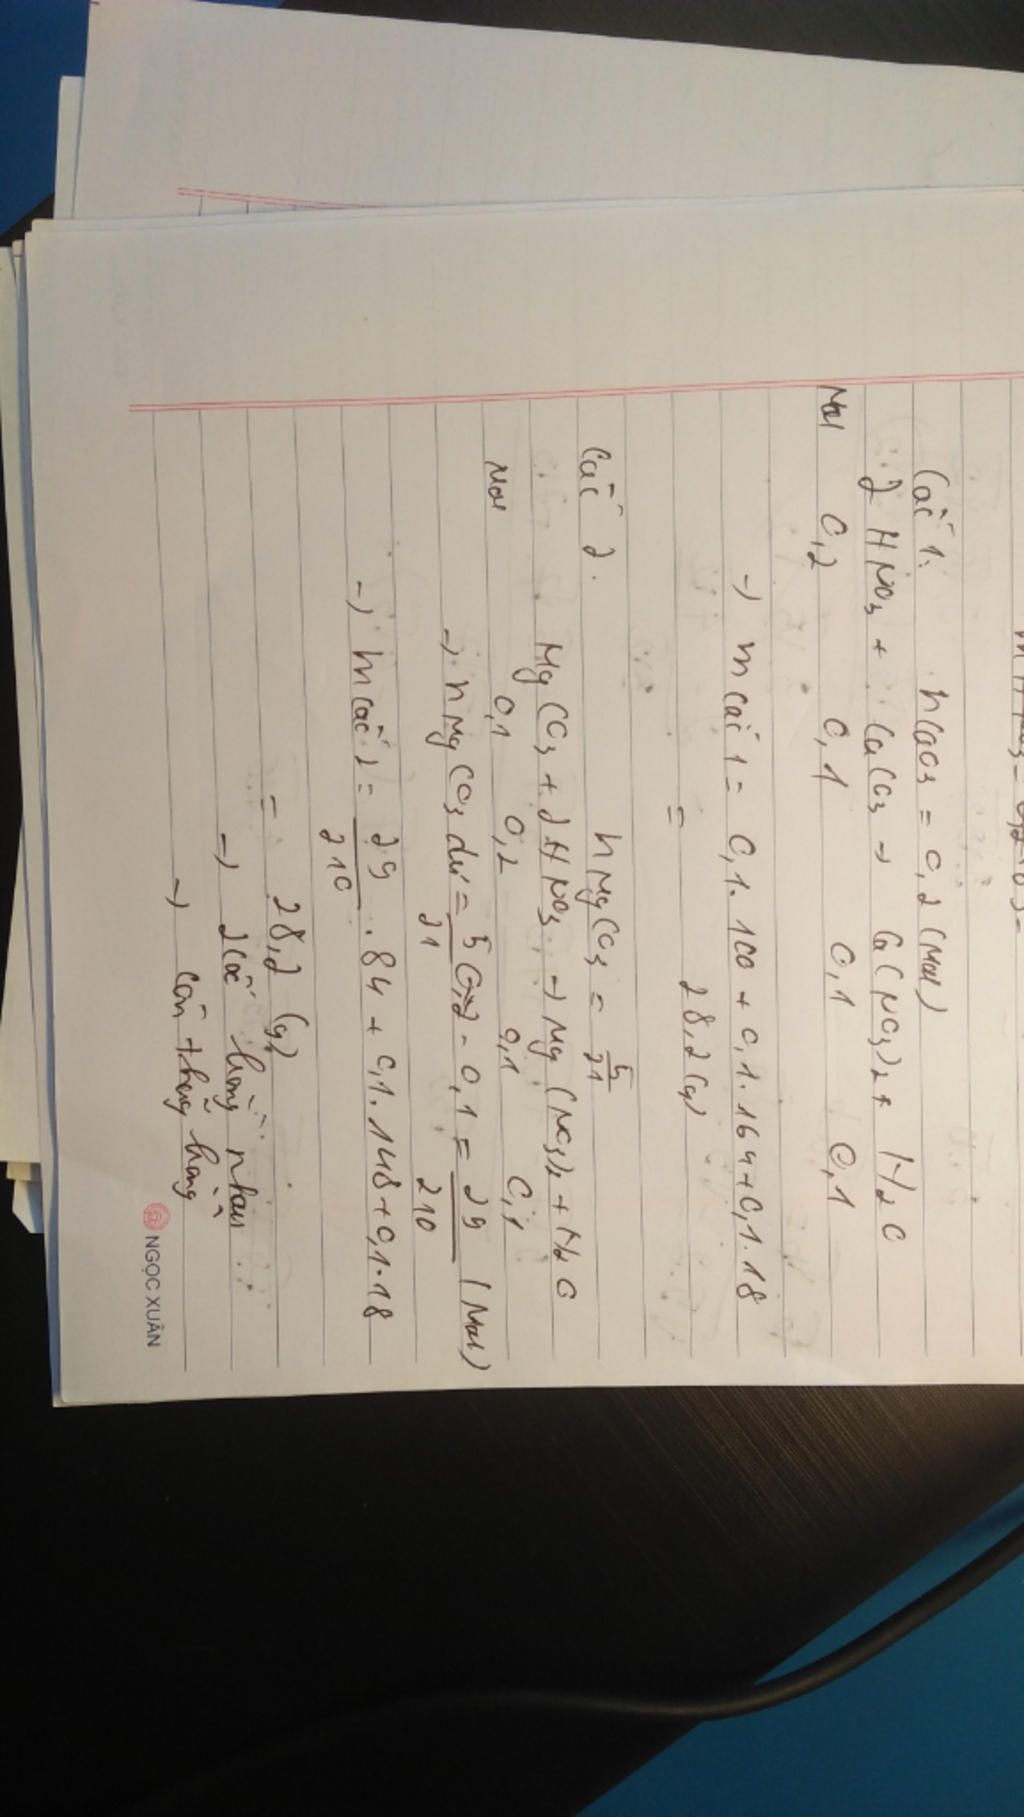 Cốc 1. nCaCO3 = 0,2 (Mol)
2 HNO3 + CaCO3 → Ca(NO3)2 + H2O
Mol 0,2 0,1 0,1 0,1
→ m cốc 1 = 0,1.100 + 0,1.164 + 0,1.18
= 28,2 (g)
Cốc 2. nMgCO3 = 5/21
MgCO3 + 2HNO3 → Mg(NO3)2 + H2O
Mol 0,1 0,2 0,1 0,1
→ nMgCO3 dư = 5/21 - 0,1 = 29/210 (Mol)
→ m cốc 2 = 29/210 . 84 + 0,1.148 + 0,1.18
= 28,2 (g)
→ 2 cốc bằng nhau
→ cân thăng bằng
NGỌC XUÂN